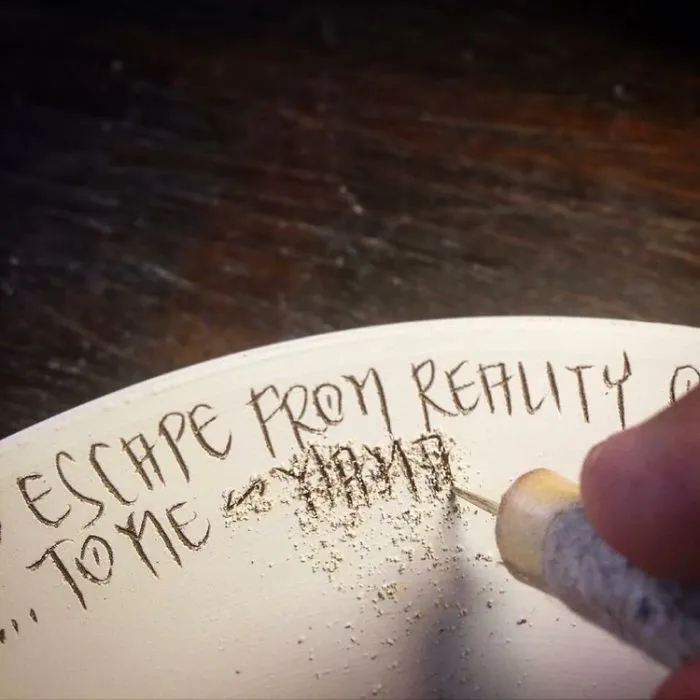 ESCAPE FROM REALITY O
... TO ME ~ MAMA